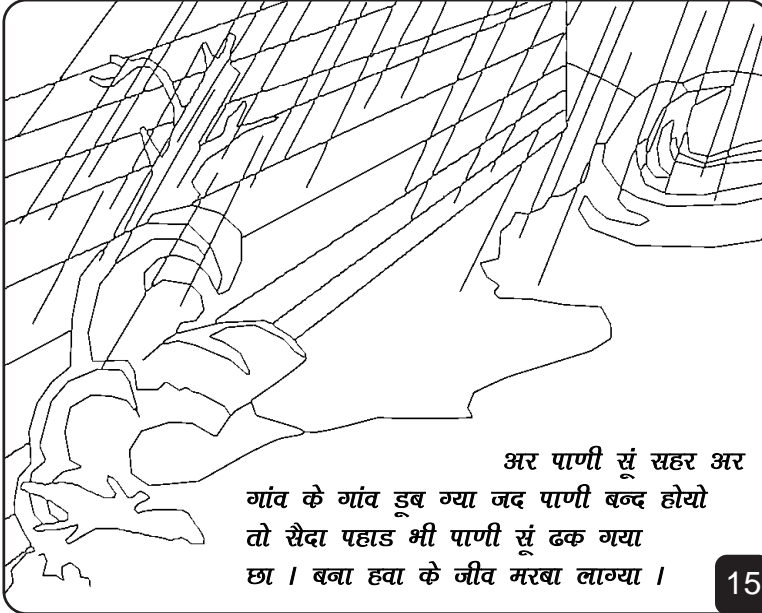 अर पाणी सूं सहर अर
गांव के गांव डूब ग्या जद पाणी बन्द होयो
तो सैदा पहाड भी पाणी सूं ढक गया
छा । बना हवा के जीव मरबा लाग्या ।
15